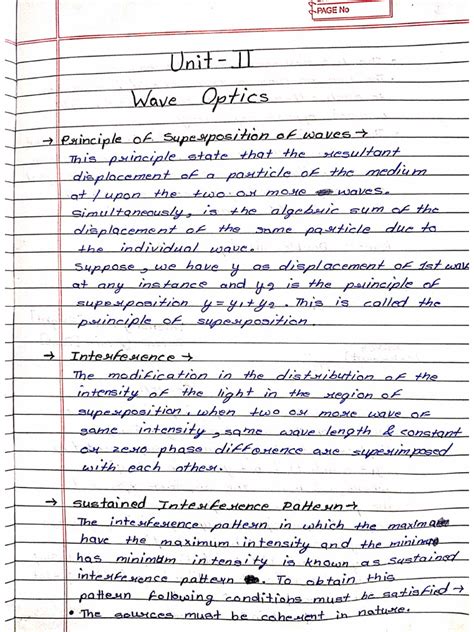 PAGE No
Unit - II
Wave Optics
→ Principle of Superposition of waves →
This principle state that the resultant
displacement of a particle of the medium
at / upon the two or more waves.
simultaneously, is the algebric sum of the
displacement of the same particle due to
the individual wave.
Suppose, we have y as displacement of 1st wave
at any instance and y2 is the principle of
superposition y = y1 + y2. This is called the
principle of superposition.
→ Interference →
The modification in the distribution of the
intensity of the light in the region of
superposition. when two or more wave of
same intensity, same wave length & constant
or zero phase difference are superimposed
with each other.
→ Sustained Interference Pattern →
The interference pattern in which the maxima
have the maximum intensity and the minima
has minimum intensity is known as sustained
interference pattern. To obtain this
pattern following conditions must be satisfied →
• The sources must be coherent in nature.